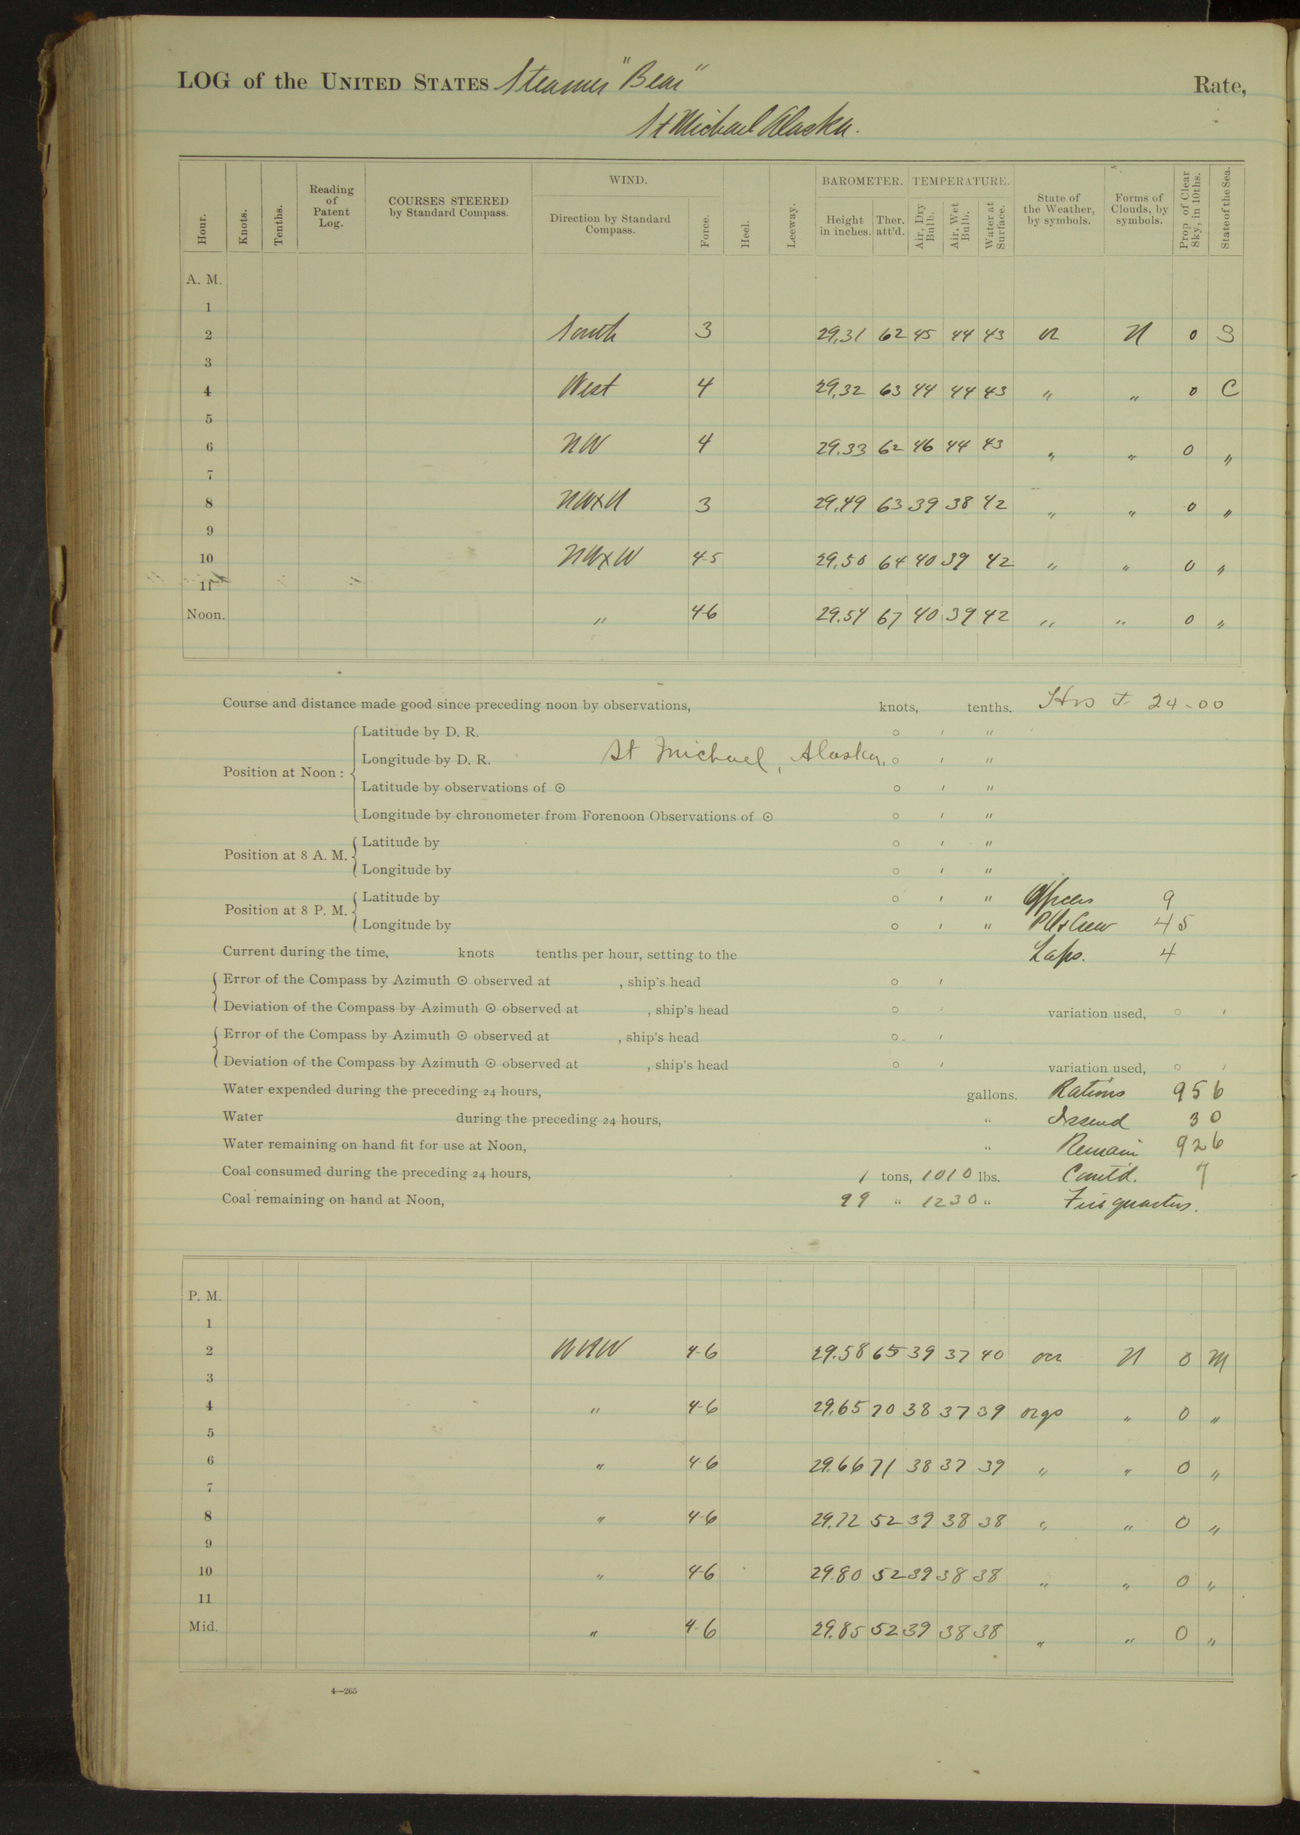 LOG of the UNITED STATES Steamer "Bear" Rate,
St Michael Alaska.
Hour. Knots. Tenths. Reading of Patent Log. COURSES STEERED by Standard Compass. WIND. Direction by Standard Compass. Force. Heel. Leeway. BAROMETER. Height in inches. Ther. att'd. TEMPERATURE. Air, Dry Bulb. Air, Wet Bulb. Water at Surface. State of the Weather, by symbols. Forms of Clouds, by symbols. Prop. of Clear Sky, in 10ths. State of the Sea.
A. M.
1
2 South 3 29.31 62 45 44 43 or N 0 S
3
4 West 4 29.32 63 44 44 43 " " 0 C
5
6 NW 4 29.33 62 46 44 43 " " 0 "
7
8 NWxN 3 29.49 63 39 38 42 " " 0 "
9
10 NWxW 4-5 29.50 64 40 39 42 " " 0 "
11
Noon. " 4-6 29.54 67 40 39 42 " " 0 "
Course and distance made good since preceding noon by observations, knots, tenths. 24-00
Position at Noon: Latitude by D. R. ° ′ ″
Longitude by D. R. St Michael, Alaska, ° ′ ″
Latitude by observations of ☉ ° ′ ″
Longitude by chronometer from Forenoon Observations of ☉ ° ′ ″
Position at 8 A. M. Latitude by ° ′ ″
Longitude by ° ′ ″
Position at 8 P. M. Latitude by ° ′ ″ Officers 9
Longitude by ° ′ ″ Crew 45
Current during the time, knots tenths per hour, setting to the 4
Error of the Compass by Azimuth ☉ observed at , ship's head ° ′
Deviation of the Compass by Azimuth ☉ observed at , ship's head ° ′ variation used, ° ′
Error of the Compass by Azimuth ☉ observed at , ship's head ° ′
Deviation of the Compass by Azimuth ☉ observed at , ship's head ° ′ variation used, ° ′
Water expended during the preceding 24 hours, gallons. Rations 956
Water during the preceding 24 hours, " Issued 30
Water remaining on hand fit for use at Noon, " Remain 926
Coal consumed during the preceding 24 hours, 1 tons, 1010 lbs. Comt'd. 7
Coal remaining on hand at Noon, 99 " 1230 " Fire quarters.
P. M.
1
2 NNW 4-6 29.58 65 39 37 40 N 0 M
3
4 " 4-6 29.65 70 38 37 39 orgs " 0 "
5
6 " 4-6 29.66 71 38 37 39 " " 0 "
7
8 " 4-6 29.72 52 39 38 38 " " 0 "
9
10 " 4-6 29.80 52 39 38 38 " " 0 "
11
Mid. " 4-6 29.85 52 39 38 38 " " 0 "
4—265